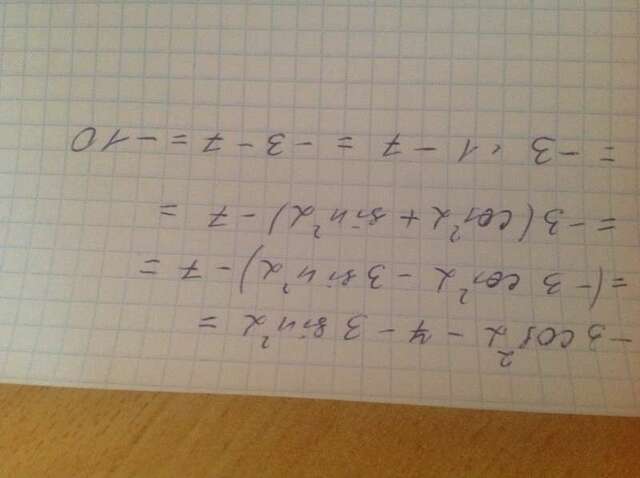 -3 cos²α - 7 - 3 sin²α =
= (-3 cos²α - 3 sin²α) - 7 =
= -3 (cos²α + sin²α) - 7 =
= -3 · 1 - 7 = -3 - 7 = -10